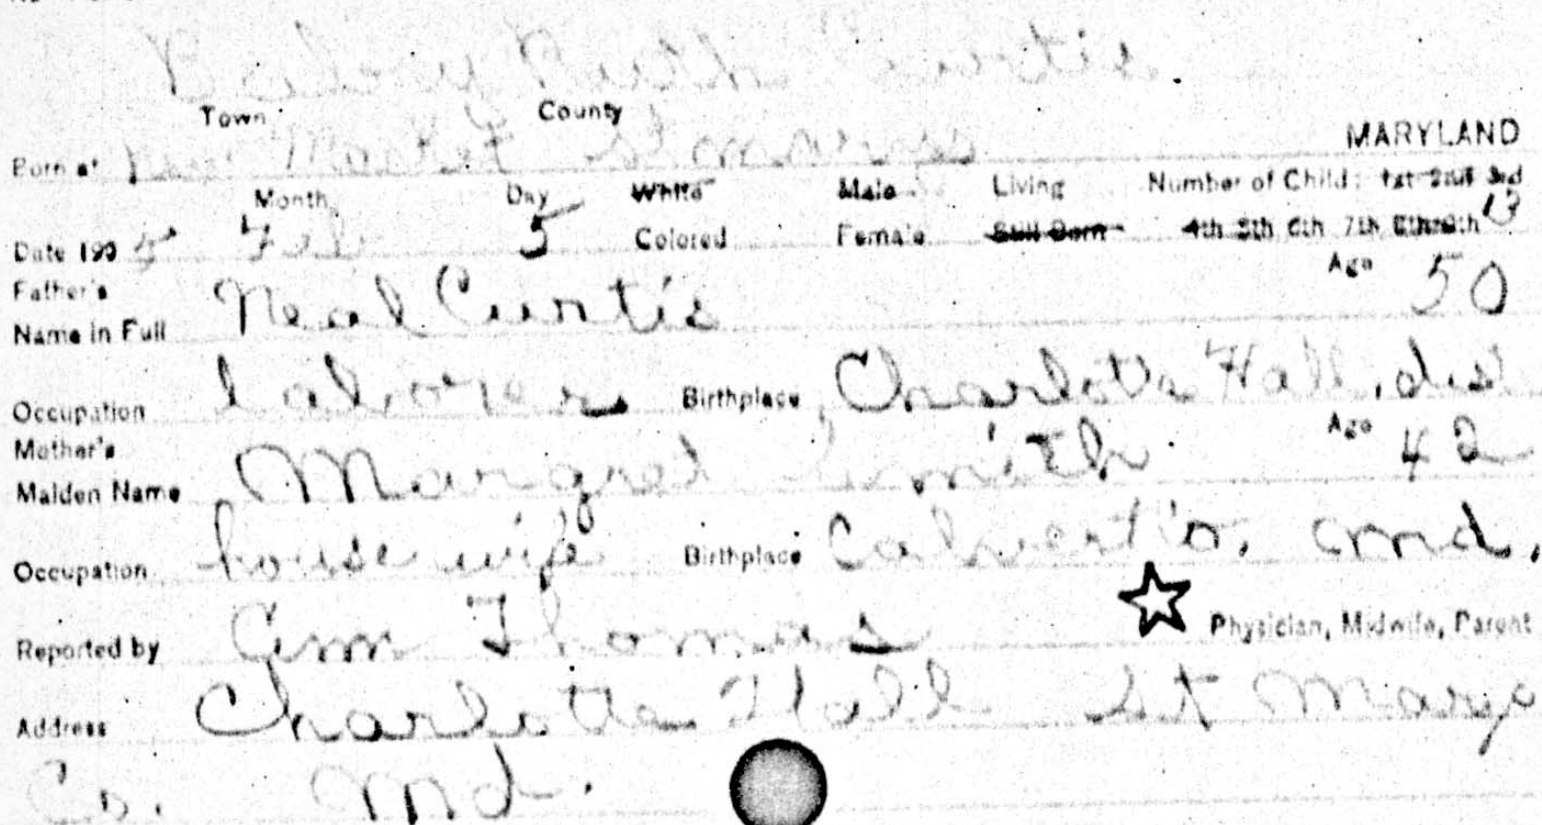 Ruth Curtis
Town County
Born at New Market St Marys MARYLAND
Month Day White Male Living Number of Child: 1st 2nd 3rd
Date 190 5 Feb 5 Colored Female Still Born 4th 5th 6th 7th 8th 9th 13
Father's Name in Full Neal Curtis Age 50
Occupation laborer Birthplace Charlotte Hall, dist
Mother's Maiden Name Margret Smith Age 42
Occupation house wife Birthplace Calvert Co. Md.
Reported by Ann Thomas Physician, Midwife, Parent
Address Charlotte Hall St Marys
Co. Md.